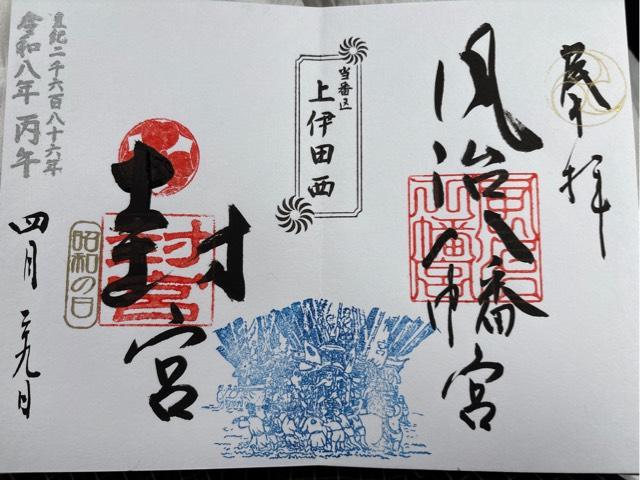 奉拝
風治八幡宮
当番区
上伊田西
封宮
昭和の日
皇紀二千六百八十六年
令和八年 丙午
四月二十九日